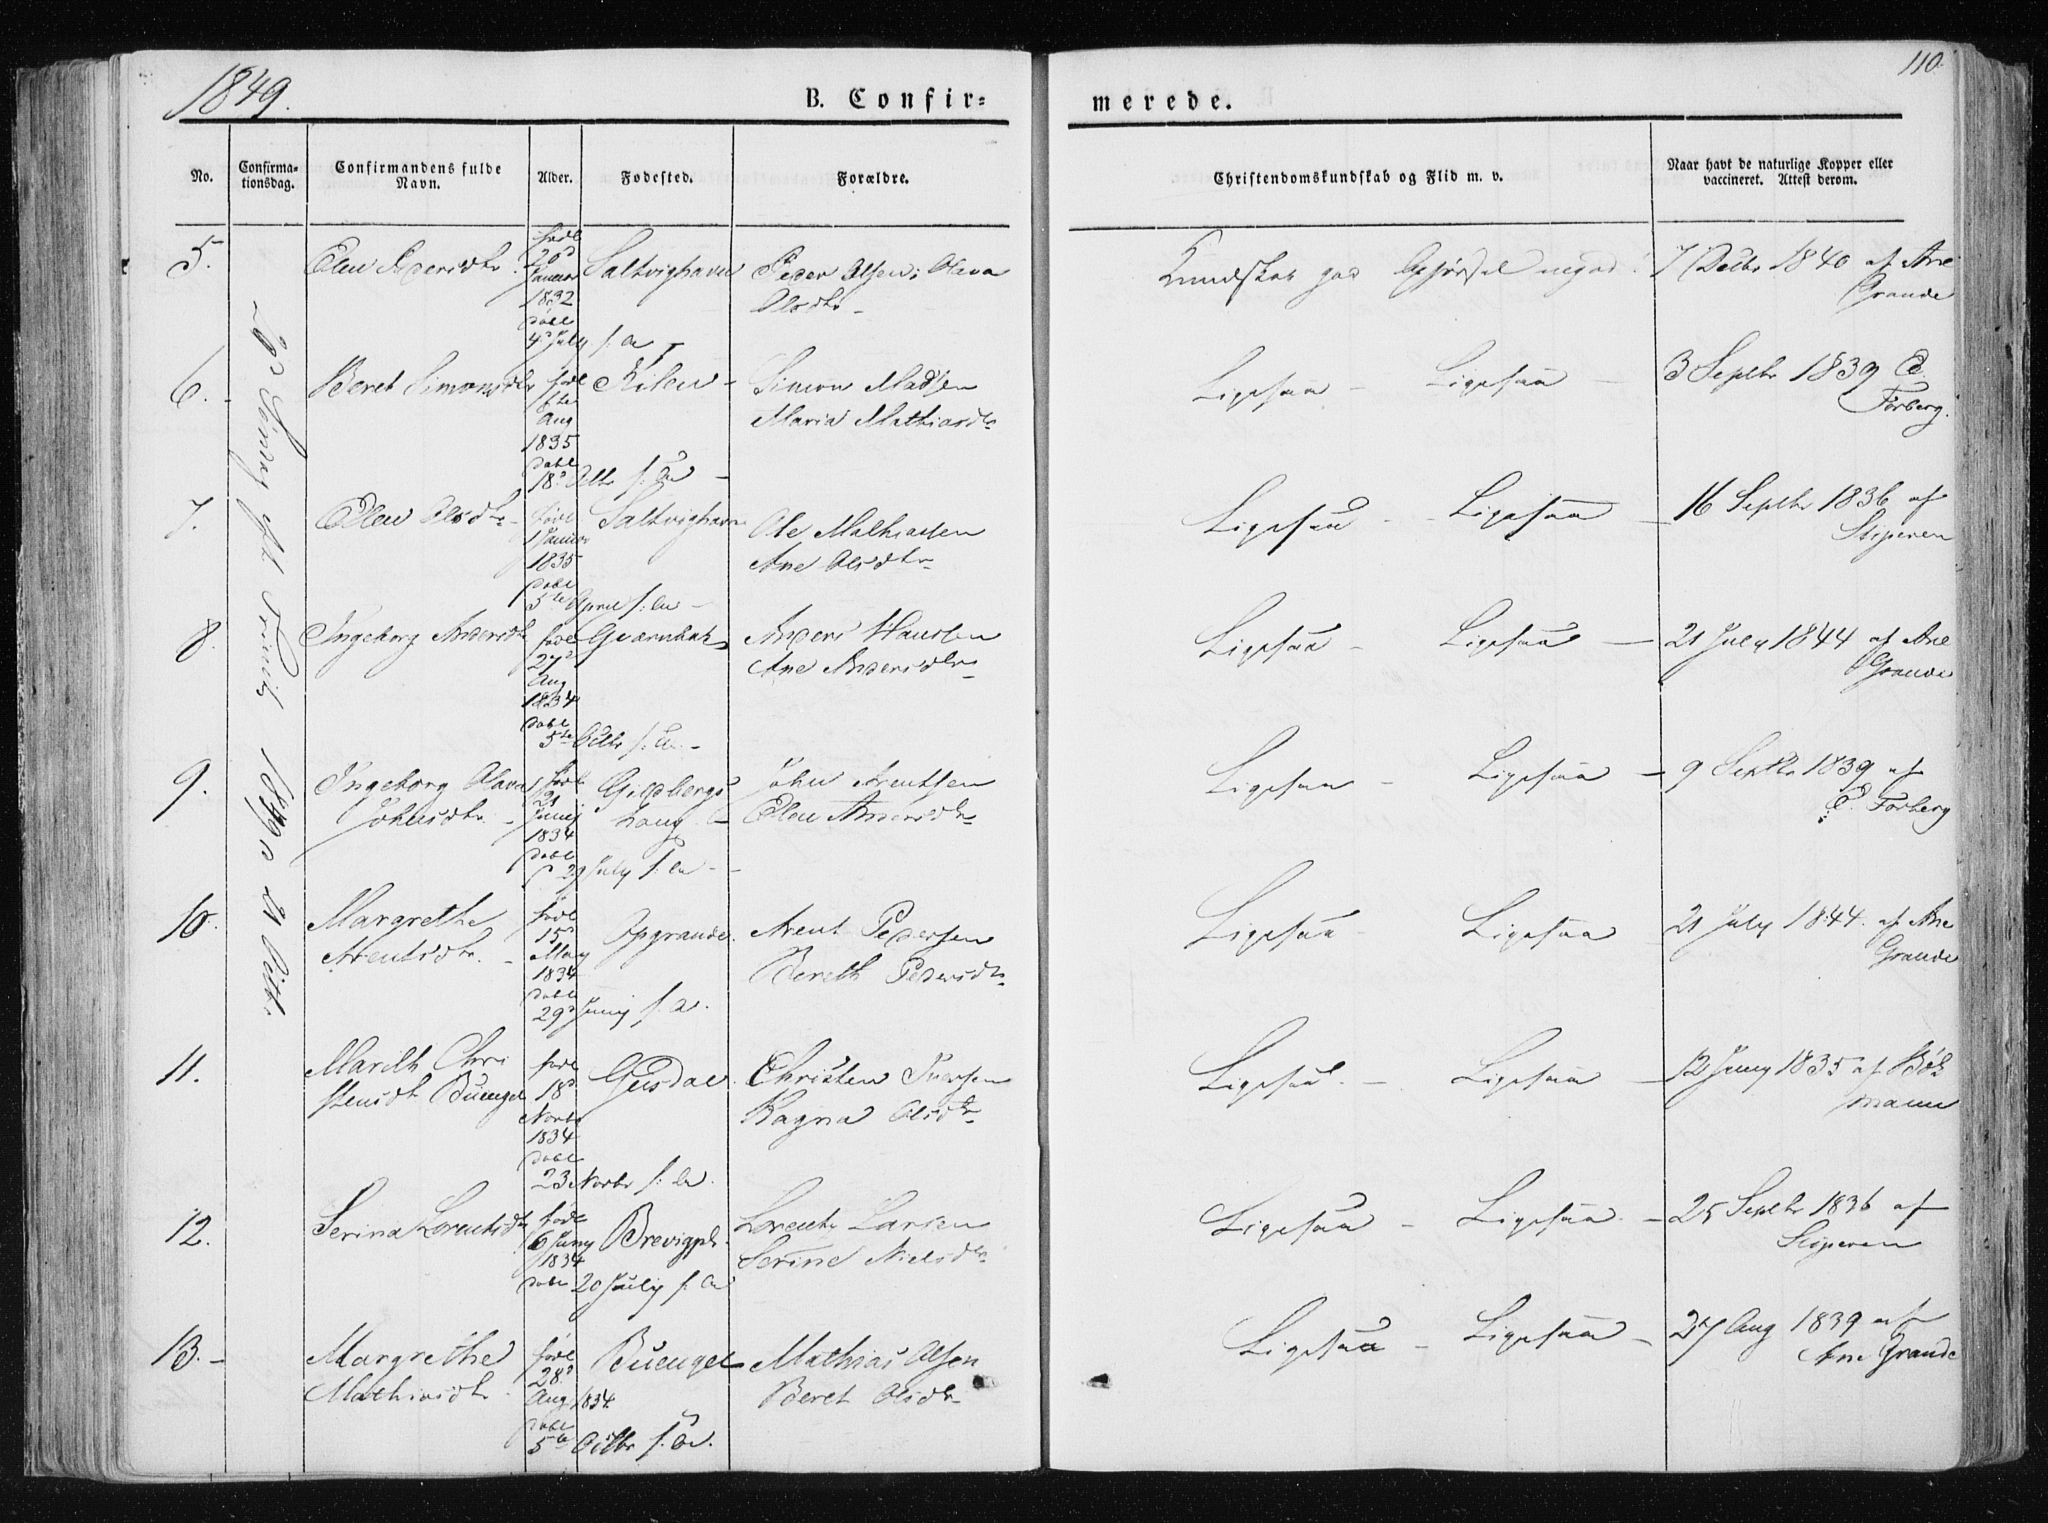 1849.
B. Confir=
merede.
110.
No.
Confirma-
tionsdag.
Confirmandens fulde
Navn.
Alder.
Fødested.
Forældre.
Christendomskundskab og Flid m. v.
Naar havt de naturlige Kopper eller
vaccineret. Attest derom.
1849 d 21 Octbr.
5.
Elen
født
20d
Januar
1832
døbt
4d July s: a
Saltvighavn
Peder Olsen, Olava
Olsdtr
Kundskab god
7 Decbr 1840 af Ane
Grande
6.
Beret Simonsdtr
født
Aug
1835
døbt
18d Octbr s: a
Kilen
Simon Madsen
Maria Mathiasdtr
Ligesaa - Ligesaa
3 Septbr 1839 E
Forberg.
7.
Elen Olsdtr
født
1 Januar
1835
døbt
5te April s: a
Saltvighavn
Ole Mathiasen
Ane Olsdtr
Ligesaa - Ligesaa
16 Septbr 1836 af
Stiperen
8.
Ingeborg Andersdtr
født
27d
Aug
1834
døbt
5te Octbr s: a
Anders Hansen
Ane Andersdtr
Ligesaa - Ligesaa
21 July 1844 af Ane
Grande
9.
Ingeborg Olava
Johnsdtr.
født
21
Junij
1834
døbt
29 July s: a
Gildbergs
John Arentsen
Elen Andersdtr
Ligesaa - Ligesaa
9 Septbr 1839 af
E. Forberg
10.
Margrethe
Arentsdtr.
født
15d
May
1834
døbt
29d Junij s. a.
Opgrande.
Arent Pedersen
Bereth Pedersdtr
Ligesaa - Ligesaa
21 July 1844. af Ane
Grande
11.
Marith Chri
stensdtr Buengel
født
18d
Novbr
1834
døbt
23 Novbr s: a.
Geisdal
Christen Iversen
Ragna Olsdtr
Ligesaa. - Ligesaa
12 Juny 1835 af Bók
mann
12.
Serina Lorentsdtr
født
6 Juny
1834
døbt 20 Julij s. a
Brevigpl.
Lorents Larsen
Serine Nielsdtr
Ligesaa - Ligesaa
25 Septbr 1836 af
Stiperen
13.
Margrethe
Mathiasdtr
født
28d
Aug 1834.
døbt
5te Octbr s: a.
Buengel
Mathias Olsen
Beret Olsdtr
Ligesaa - Ligesaa
27 Aug 1839 af
Ane Grande